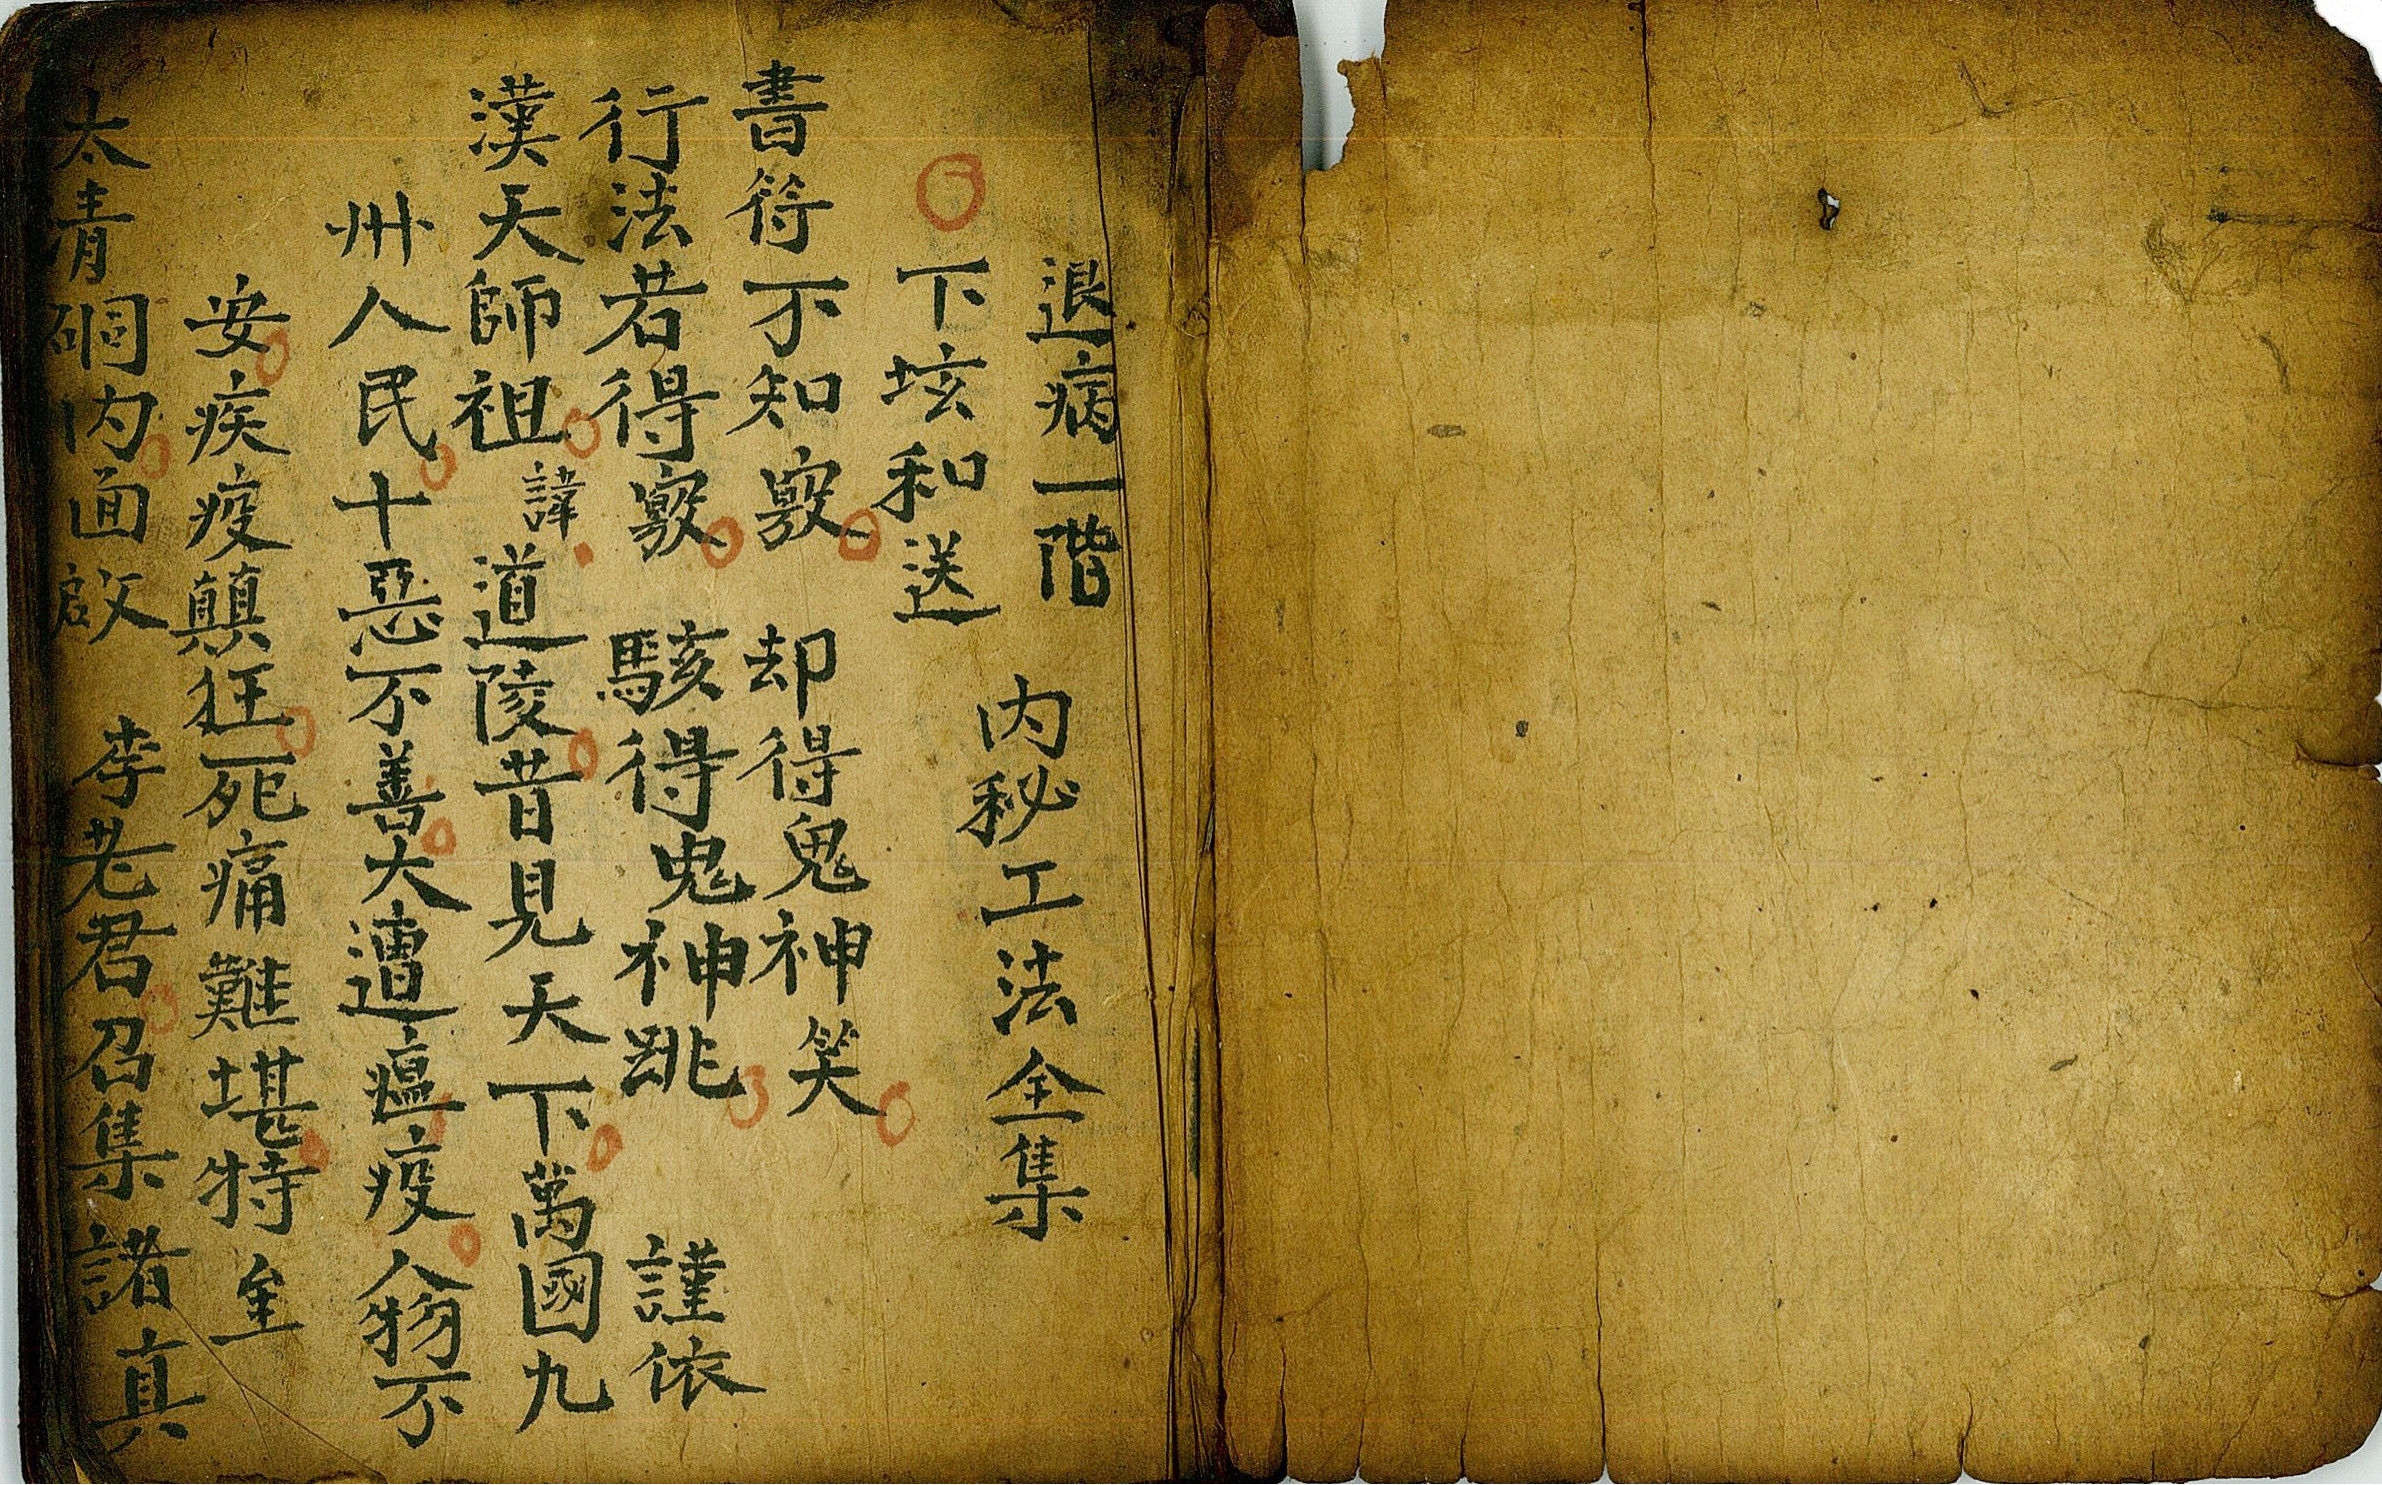 退病一階
內秘工法全集
下垓和送
書符不知竅 却得鬼神笑
行法若得竅 駭得鬼神跳 謹依
漢天師祖諱道陵昔見天下萬國九
州人民十惡不善大遭瘟疫人物不
安疾疫顛狂死痛難堪特 𡉈
太清硐內面啟 李老君召集諸真